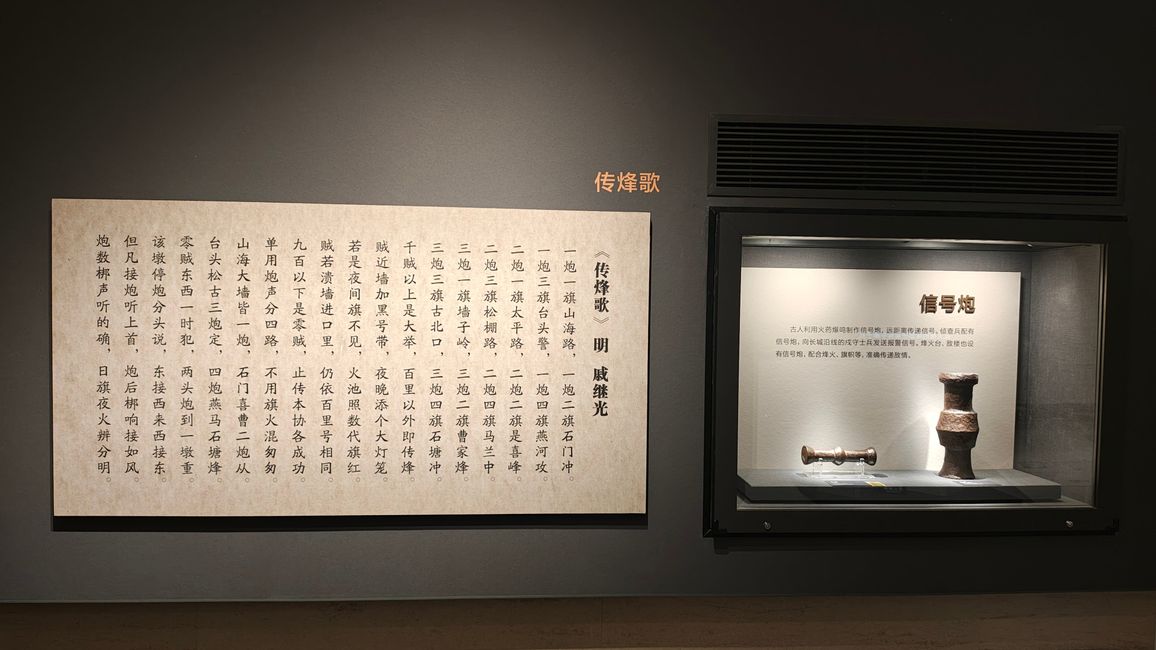 传烽歌
《传烽歌》 明 戚继光
一炮一旗山海路，一炮二旗石门冲。
一炮三旗台头警，一炮四旗燕河攻。
二炮一旗太平路，二炮二旗是喜峰。
二炮三旗松棚路，二炮四旗马兰中。
三炮一旗墙子岭，三炮二旗曹家烽。
三炮三旗古北口，三炮四旗石塘冲。
千贼以上是大举，百里以外即传烽。
贼近墙加黑号带，夜晚添个大灯笼。
若是夜间旗不见，火池照数代旗红。
贼若溃墙进口里，仍依百里号相同。
九百以下是零贼，止传本协各成功。
单用炮声分四路，不用旗火混匆匆。
山海大墙皆一炮，石门喜曹二炮从。
台头松古三炮定，四炮燕马石塘烽。
零贼东西一时犯，两头炮到一墩重。
该墩停炮分头说，东接西来西接东。
但凡接炮听上首，炮后梆响接如风。
炮数梆声听的确，日旗夜火辨分明。
信号炮
古人利用火药爆鸣制作信号炮，远距离传递信号。侦查兵配有
信号炮，向长城沿线的戍守士兵发送报警信号。烽火台、敌楼也设
有信号炮，配合烽火、旗帜等，准确传递敌情。